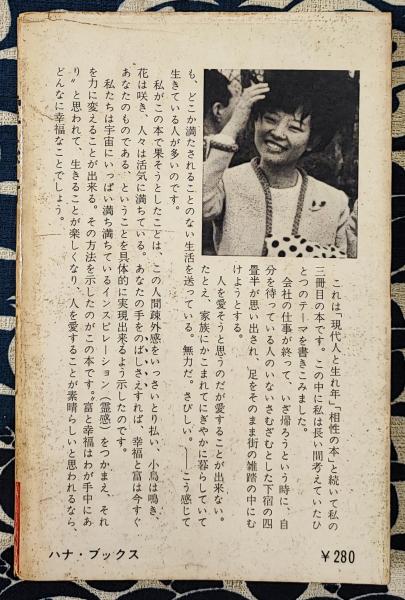 これは「現代人と生れ年」「相性の本」と続いて私の
三冊目の本です。この中に私は長い間考えていたひ
とつのテーマを書きこみました。
会社の仕事が終って、いざ帰ろうという時に、自
分を待っている人のいないさむざむとした下宿の四
畳半が思い出され、足をそのまま街の雑踏の中にむ
けようとする。
人を愛そうと思うのだが愛することが出来ない。
たとえ、家族にかこまれてにぎやかに暮らしていて
も、どこか満たされることのない生活を送っている。無力だ。さびしい。――こう感じて
生きている人が多いのです。
私がこの本で果そうとしたことは、この人間疎外感をいっさいとり払い、小鳥は鳴き、
花は咲き、人々は活気に満ちている。あなたの手をのばしさえすれば、幸福と富は今すぐ
あなたのものである、ということを具体的に実現出来るよう示したのです。
私たちは宇宙にいっぱい満ち満ちているインスピレーション（霊感）をつかまえ、それ
を力に変えることが出来る。その方法を示したのがこの本です。〝富と幸福はわが手中にあ
り〟と思われて、生きることが楽しくなり、人を愛することが素晴らしいと思われるなら、
どんなに幸福なことでしょう。
ハナ・ブックス
￥280